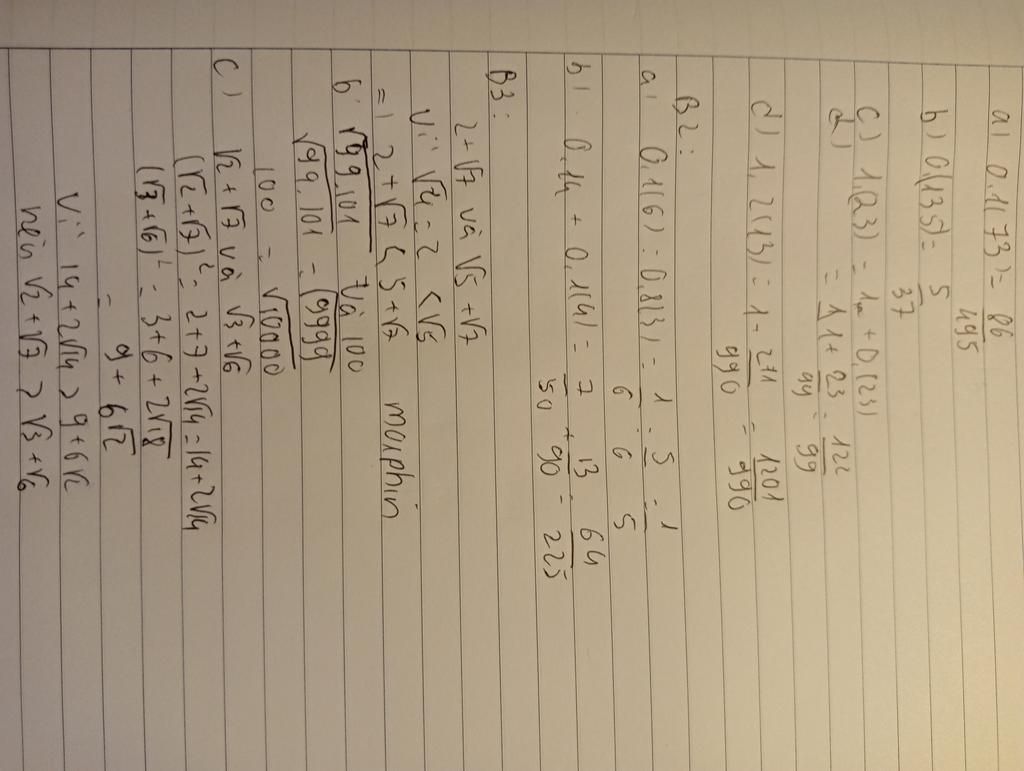 a) 0,1(73) = 86/495
b) 0,(135) = 5/37
c) 1,(23) = 1 + 0,(23)
d)
= 1 + 23/99 = 122/99
d) 1,2(13) = 1 - 211/990 = 1201/990
B2:
a) 0,1(6) : 0,8(3) = 1/6 : 5/6 = 1/5
b) 0,14 + 0,1(4) = 7/50 + 13/90 = 64/225
B3:
2+√7 và √5+√7
Vì √4 = 2 < √5
=) 2+√7 < √5+√7 marphin
b) √99.101 và 100
√99.101 = √9999
100 = √10000
C) √2+√7 và √3+√6
(√2+√7)² = 2+7+2√14 = 14+2√14
(√3+√6)² = 3+6+2√18
= 9+6√2
Vì 14+2√14 > 9+6√2
nên √2+√7 > √3+√6